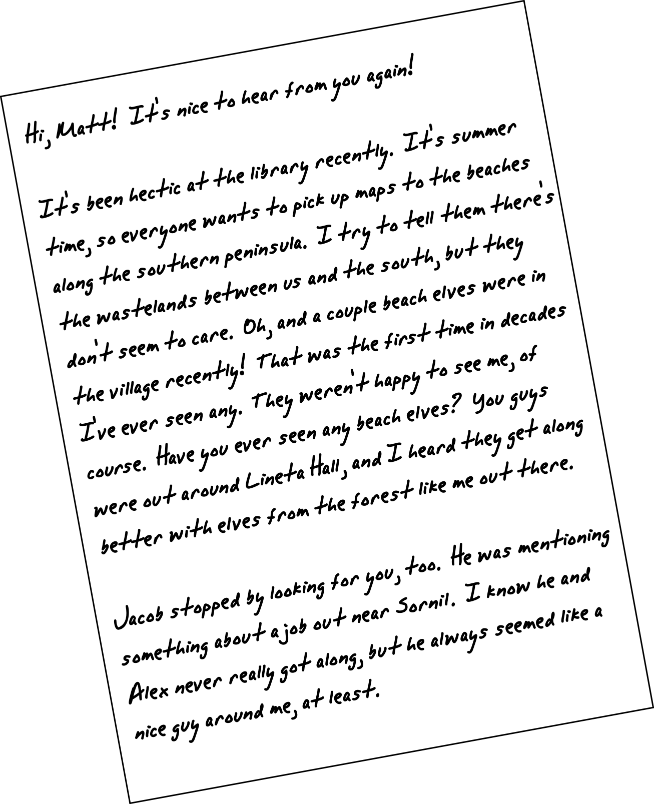 Hi, Matt! It's nice to hear from you again!
It's been hectic at the library recently. It's summer
time, so everyone wants to pick up maps to the beaches
along the southern peninsula. I try to tell them there's
the wastelands between us and the south, but they
don't seem to care. Oh, and a couple beach elves were in
the village recently! That was the first time in decades
I've ever seen any. They weren't happy to see me, of
course. Have you ever seen any beach elves? You guys
were out around Lineta Hall, and I heard they get along
better with elves from the forest like me out there.
Jacob stopped by looking for you, too. He was mentioning
something about a job out near Sornil. I know he and
Alex never really got along, but he always seemed like a
nice guy around me, at least.